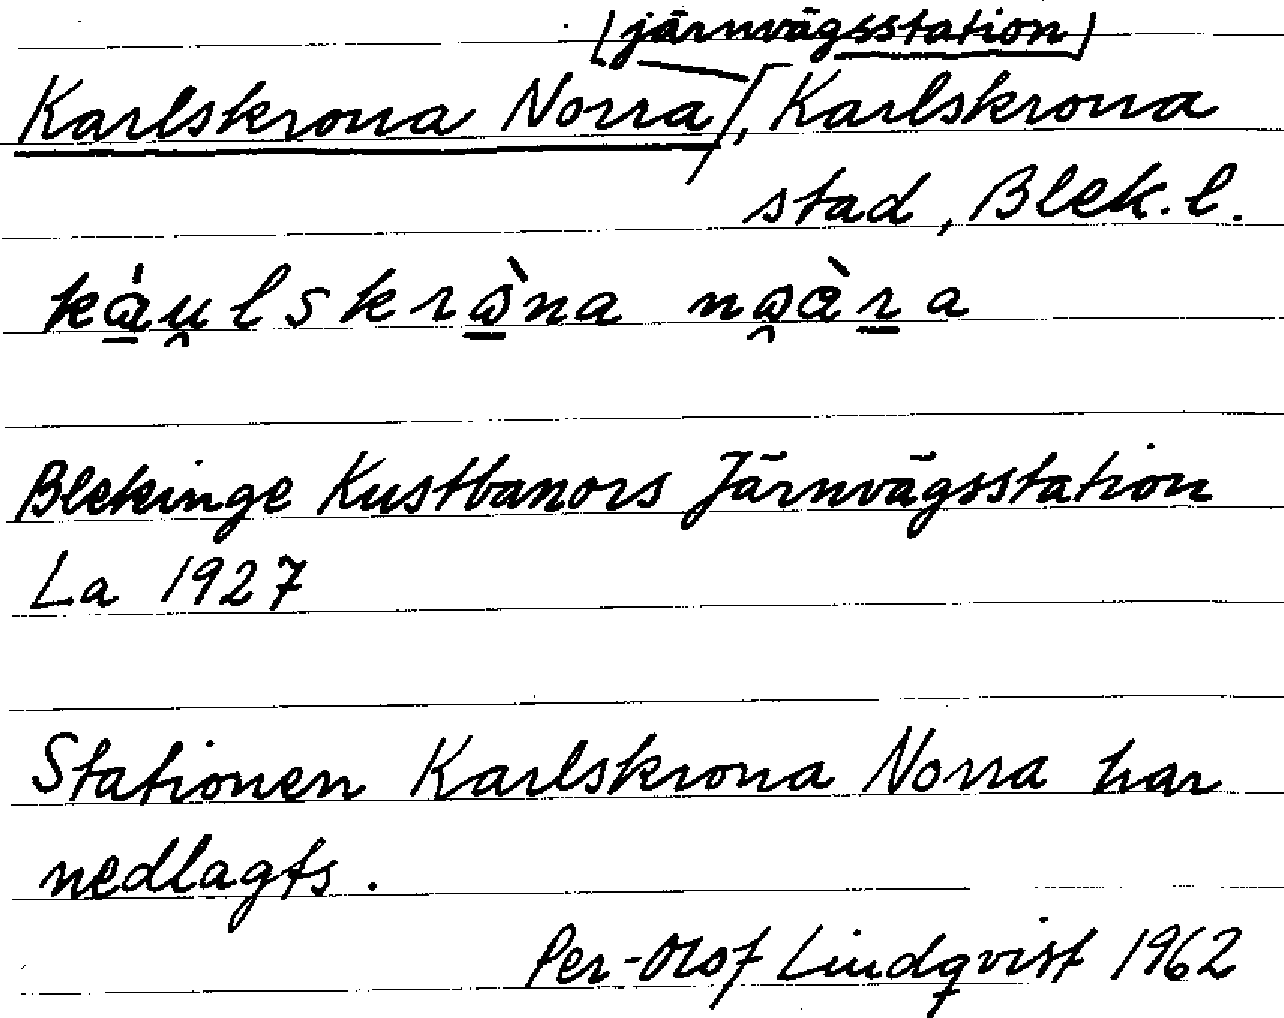 (järnvägsstation)
Karlskrona Norra, Karlskrona
stad, Blek. l.
Blekinge Kustbanors Järnvägsstation
La 1927
Stationen Karlskrona Norra har
nedlagts.
Per-Olof Lindqvist 1962